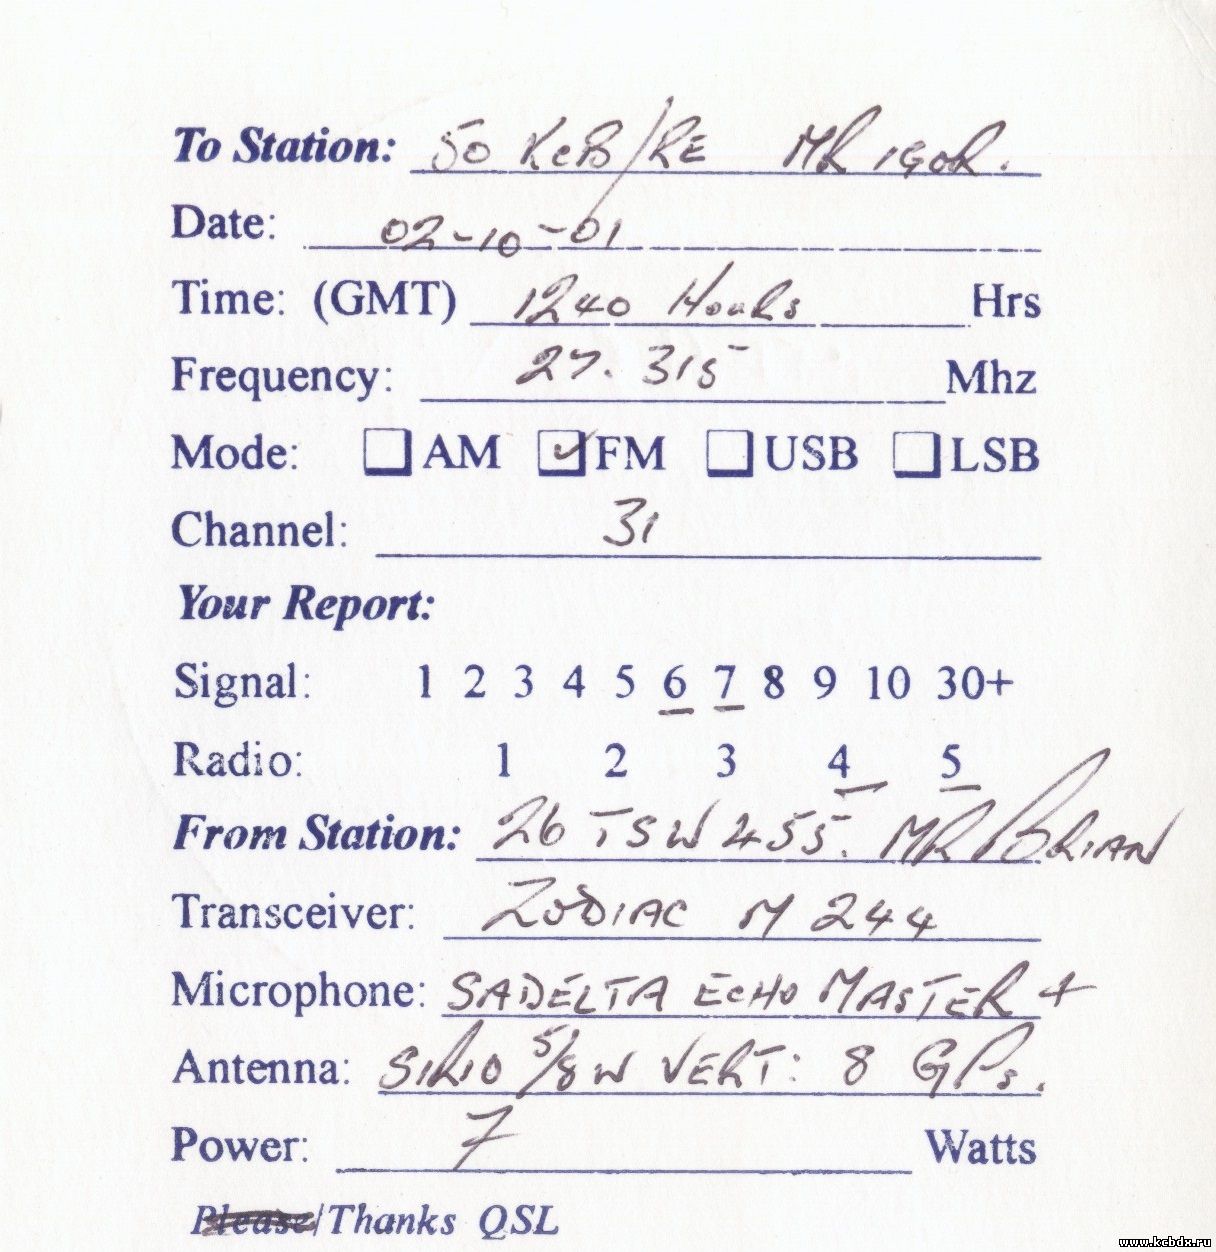 To Station: 50 KCB/RE MR IGOR.
Date: 02-10-01
Time: (GMT) 1240 Hours Hrs
Frequency: 27.315 Mhz
Mode: AM FM USB LSB
Channel: 31
Your Report:
Signal: 1 2 3 4 5 6 7 8 9 10 30+
Radio: 1 2 3 4 5
From Station: 26 TSW 455. MR BRIAN
Transceiver: ZODIAC M 244
Microphone: SADELTA ECHO MASTER +
Antenna: SIRIO 5/8 W VERT: 8 GPs.
Power: 7 Watts
Please/Thanks QSL
www.kcbdx.ru